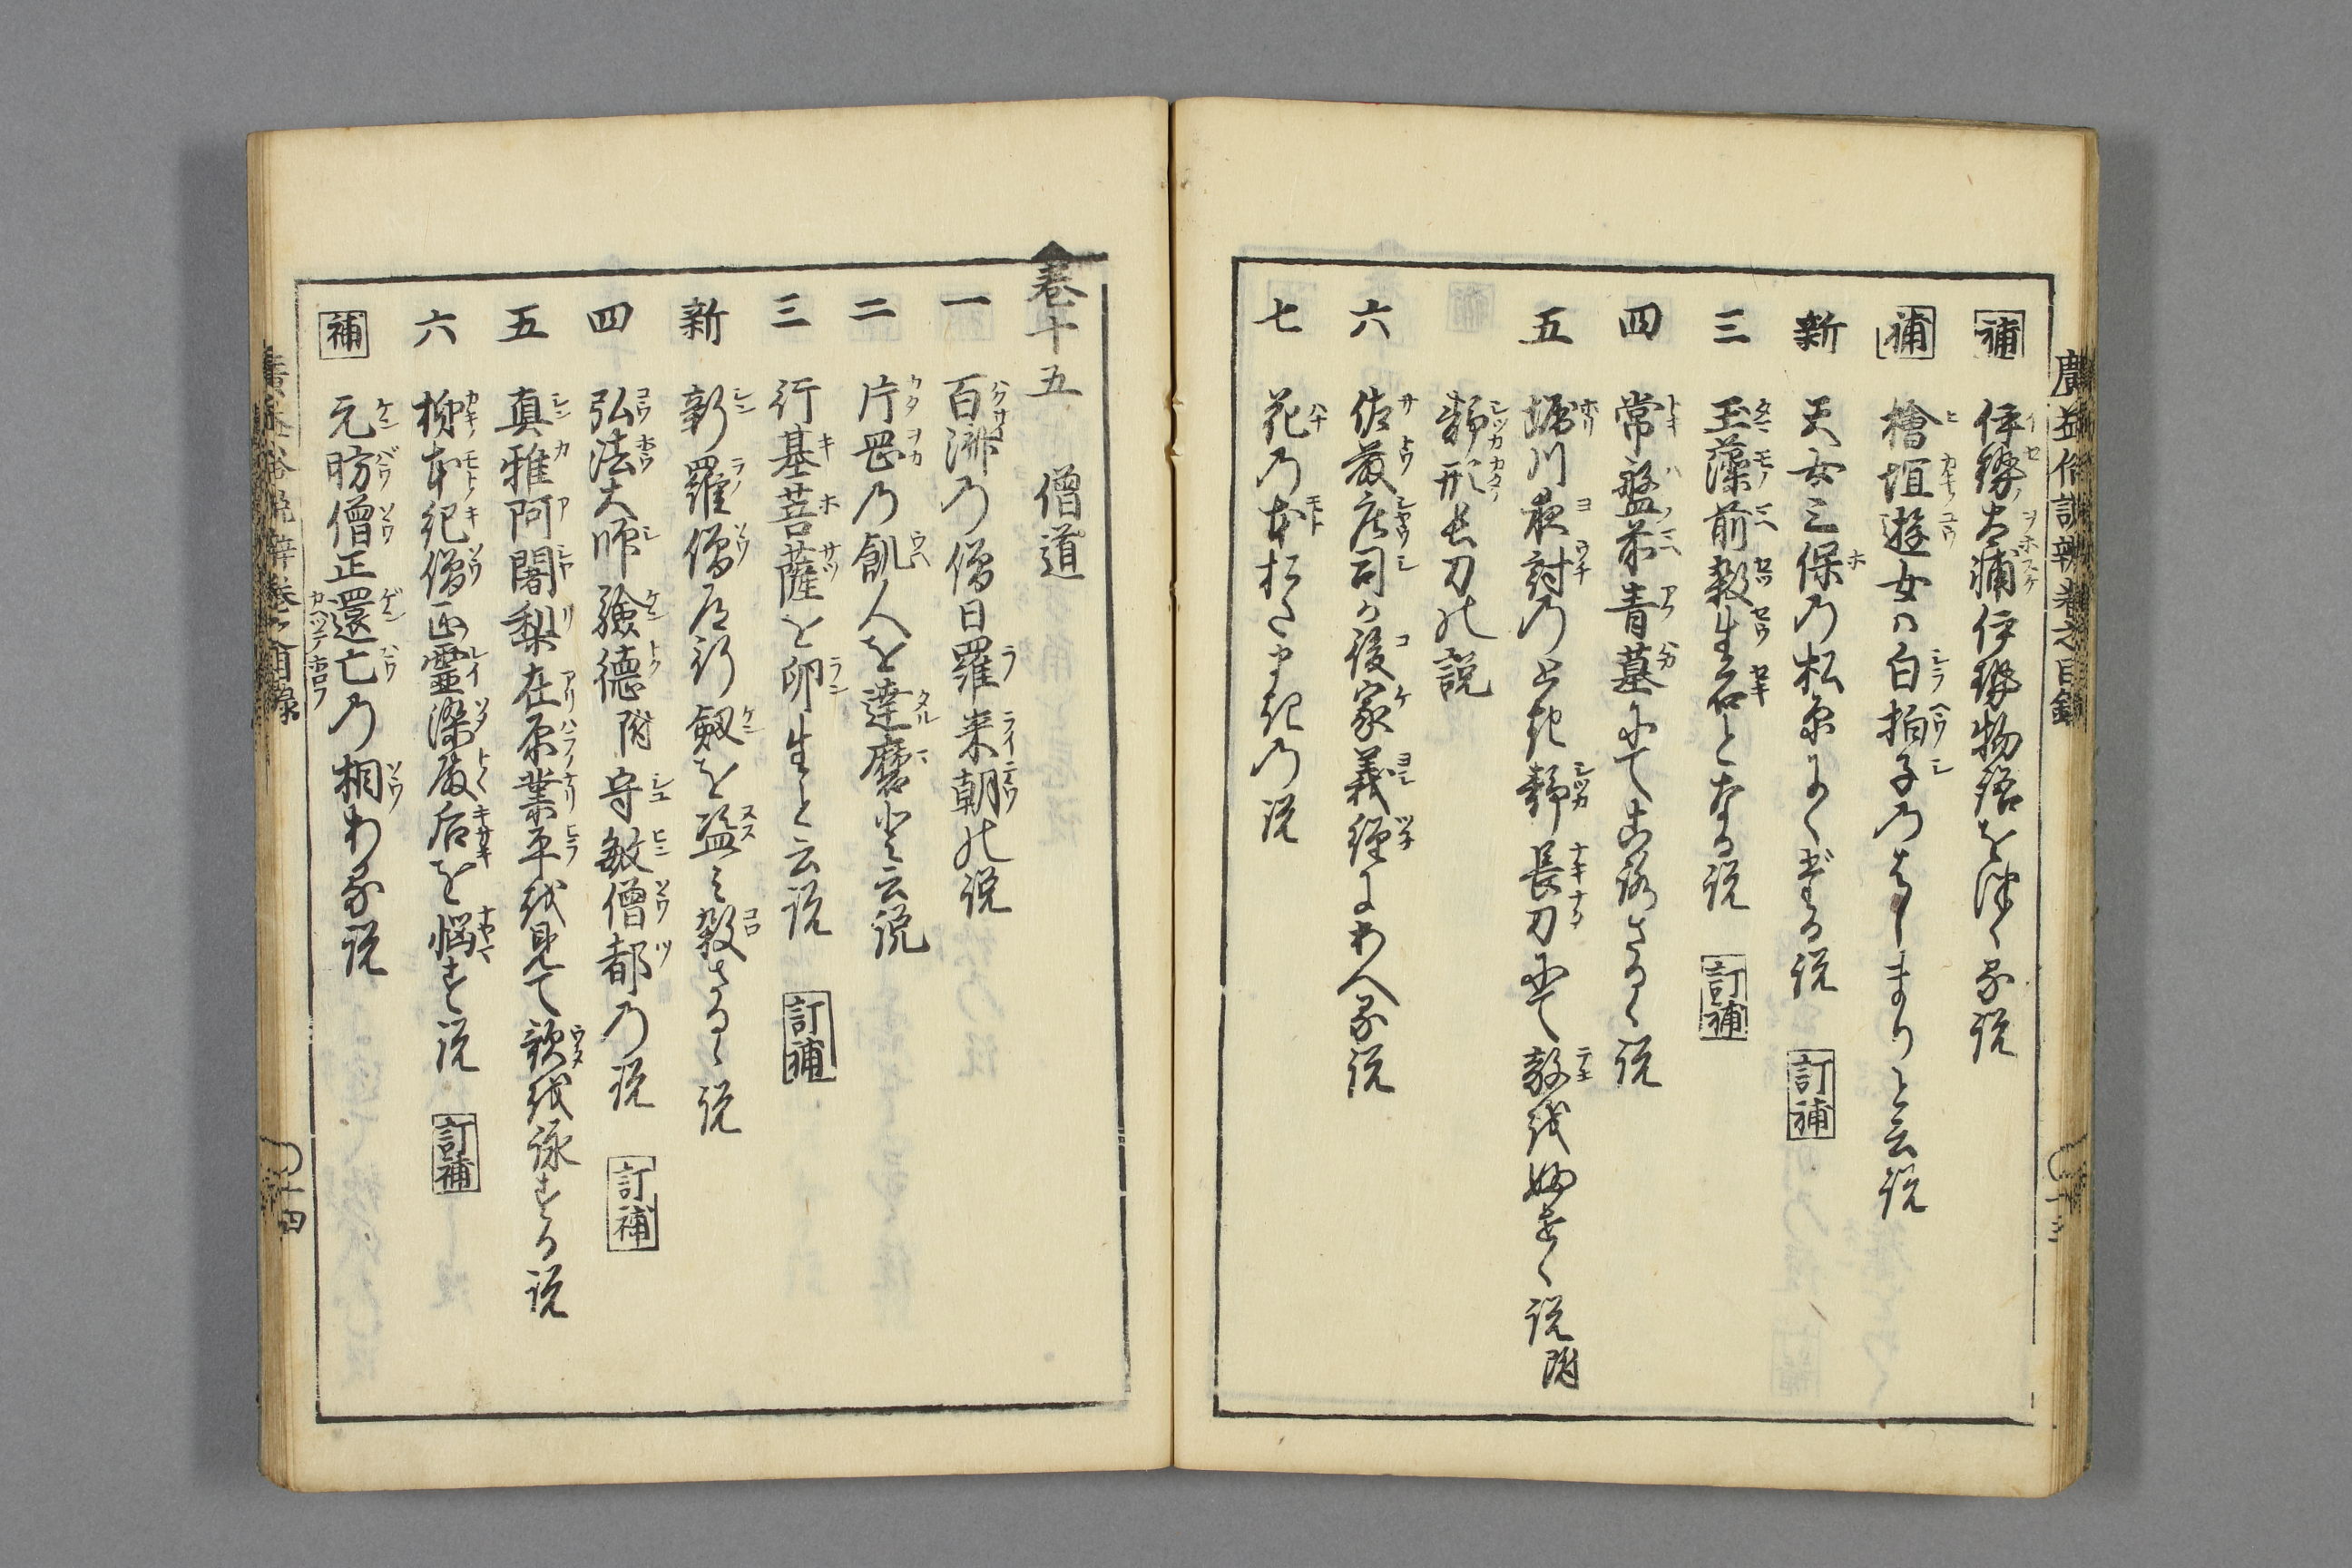 廣益俗説辨巻之目録
補 伊勢大輔伊勢物語を作る説
補 檜垣遊女ハ白拍子乃はしまりと云説
新 天女三保乃松原にくだる説 訂補
三 玉藻前殺生石となる説 訂補
四 常盤前青墓にて殺さるゝ説
五 堀川夜討乃とき静長刀にて敵を防く説 附
静形長刀の説
六 佐藤庄司か後家義經にあへる説
七 花乃本枕さうきの説
巻十五 僧道
一 百済乃僧日羅来朝の説
二 片岡乃飢人を達磨なりと云説
三 行基菩薩を卵生と云説 訂補
新 新羅僧道行劔を盗ミ殺さるゝ説
四 弘法大師験徳附守敏僧都乃説 訂補
五 真雅阿闍梨在原業平を見て歌を詠する説
六 柿本紀僧正霊染殿后を悩す説 訂補
補 元昉僧正還亡乃相ある説
廣益俗説辨巻之目録
十四